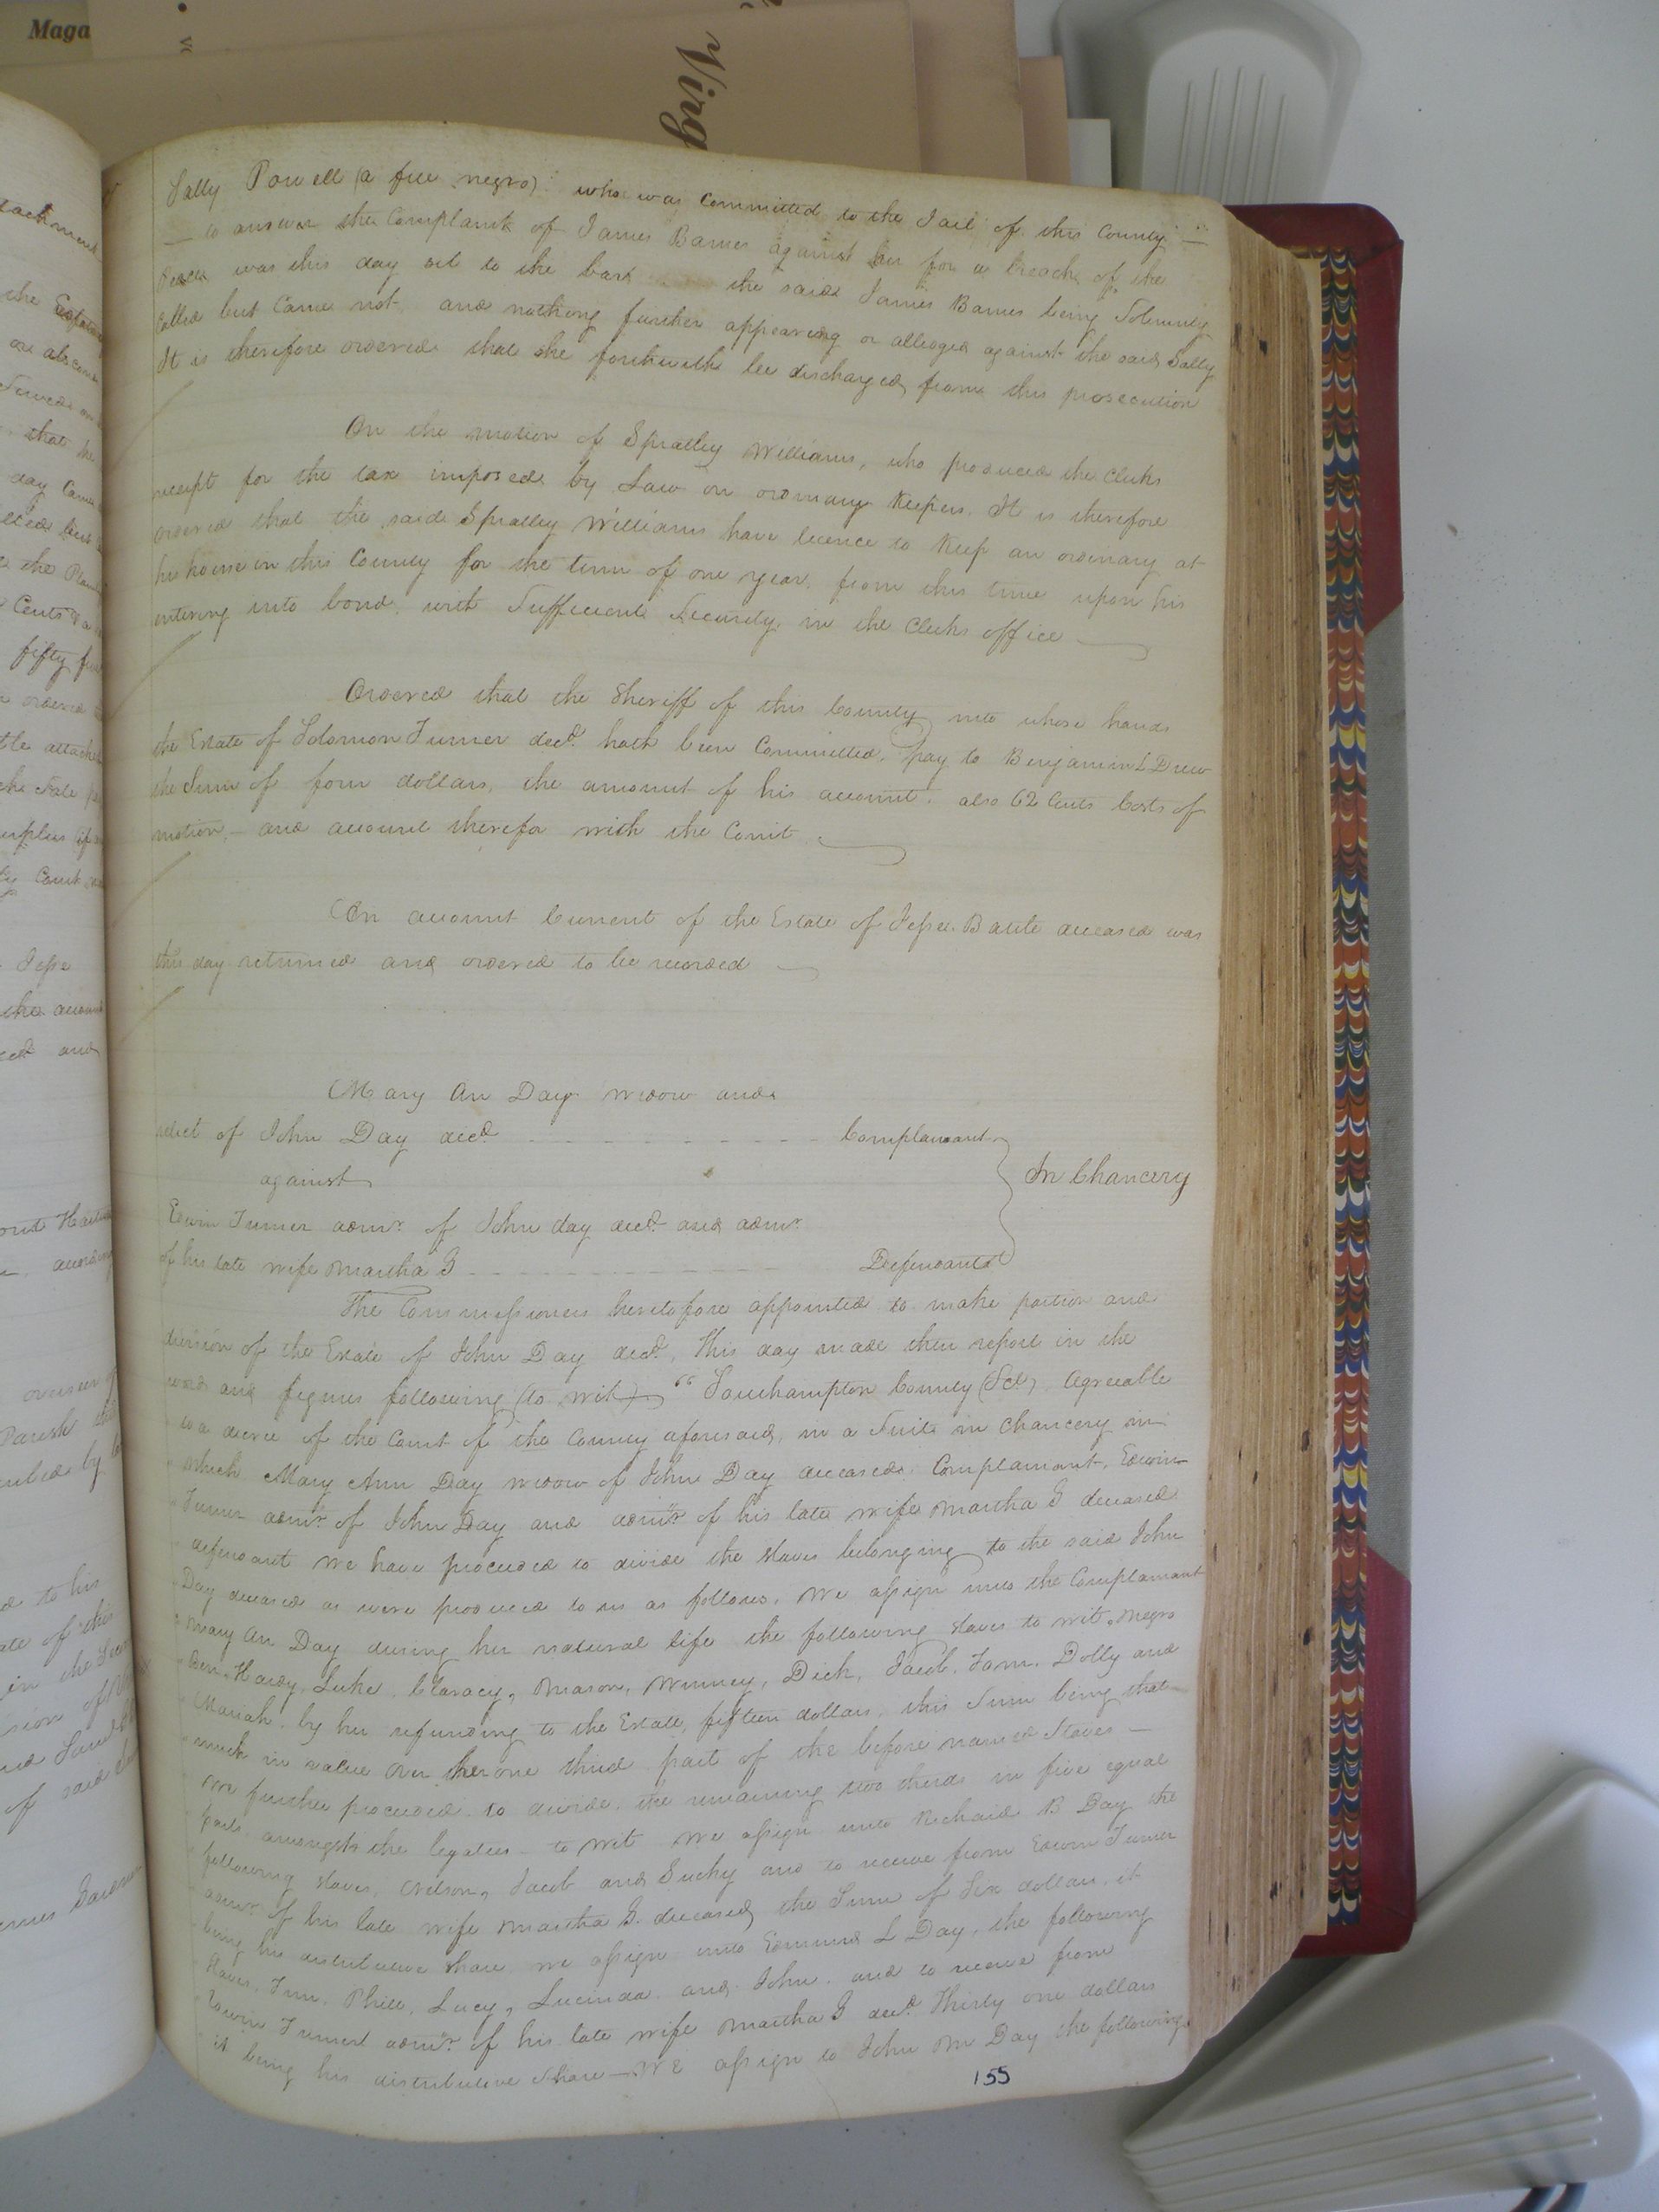 Maga
Virg
Sally Powell (a free negro) who was Committed to the Jail of this County —
— to answer the Complaint of James Barnes against her for a breach of the
peace was this day set to the bar the said James Barnes being Solemnly
Called but Came not and nothing further appearing or alledged against the said Sally
It is therefore ordered that she forthwith be discharged from this prosecution
On the motion of Spratley Williams, who produced the Clerks
receipt for the tax imposed by Law on ordinary Keepers. It is therefore
ordered that the said Spratley Williams have licence to Keep an ordinary at
his house in this County for the term of one year from this time upon his
entering into bond with Sufficient Security in the Clerks office
Ordered that the Sheriff of this County into whose hands
the Estate of Solomon Turner decd. hath been Committed, pay to Benjamin L Drew
the Sum of four dollars, the amount of his account. also 62 Cents Costs of
motion, — and account therefor with the Court
An account Current of the Estate of Jesse Battle deceased was
this day returned and ordered to be recorded
Mary An Day widow and
relict of John Day decd. Complainant
against
In Chancery
Edwin Turner admr. of John day decd. and admr.
of his late wife Martha G Defendants
The Commissioners heretofore appointed to make partion and
division of the Estate of John Day decd. This day made their report in the
word and figures following (to wit) "Southampton County (Sct). Agreeable
to a decree of the Court of the County aforesaid, in a Suit in Chancery in
which Mary Ann Day widow of John Day deceased. Complainant, Edwin
Turner admr. of John Day and admr. of his late wife Martha G deceased
defendant We have proceeded to divide the slaves belonging to the said John
Day deceased as were produced to us as follows. We assign unto the Complainant
Mary An Day during her natural life the following slaves to wit, negro
Ben, Hardy, Luke, Claracy, Mason, Winney, Dick, Jacob, Tom, Dolly and
Mariah, by her refunding to the Estate, fifteen dollars, this Sum being that
much in value over her one third part of the before named Slaves —
we further proceeded to divide the remaining two thirds in five equal
parts amongst the legatees to wit We assign unto Richard B Day the
following slaves, Nelson, Jacob and Suchy and to receive from Edwin Turner
admr. of his late wife Martha G. deceased, the Sum of Six dollars, it
being his distributive share we assign unto Edmund L Day, the following
slaves, Phill, Lucy, Lucinda and John and to receive from
Edwin Turner admr. of his late wife Martha G decd. Thirty one dollars
it being his distributive share — We assign to John M Day the following
155